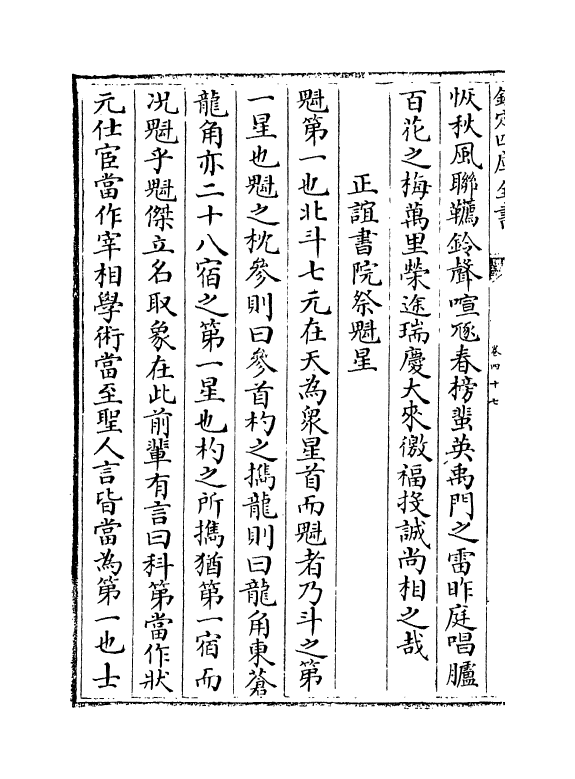 欽定四庫全書
卷四十七
恢秋風聯韉鈴聲喧
春榜蜚英禹門之雷昨庭唱臚
百花之梅萬里榮途瑞慶大來徼福投誠尚相之哉
正誼書院祭魁星
魁第一也北斗七元在天為衆星首而魁者乃斗之第
一星也魁之枕參則曰參首杓之㩗龍則曰龍角東蒼
龍角亦二十八宿之第一星也杓之所㩗猶第一宿而
况魁乎魁傑立名取象在此前輩有言曰科第當作狀
元仕宦當作宰相學術當至聖人言皆當為第一也士